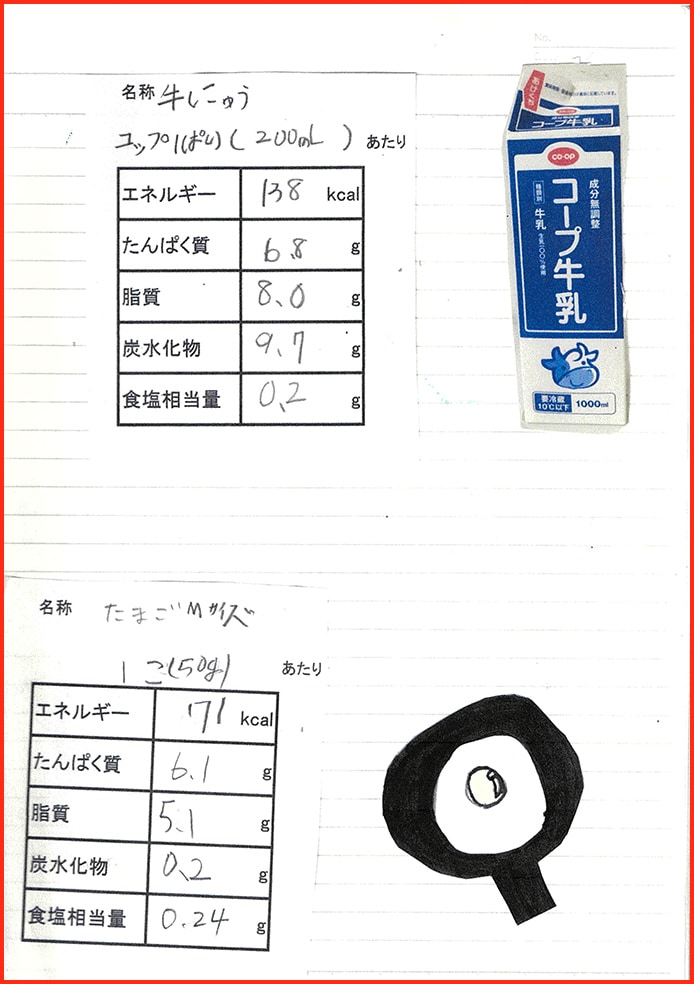 No.
名称 牛にゅう
コップ1ぱい(200mL)あたり
エネルギー 138 kcal
たんぱく質 6.8 g
脂質 8.0 g
炭水化物 9.7 g
食塩相当量 0.2 g
あけくち
コープ牛乳
co-op
成分無調整
種類別 牛乳
生乳100%使用
コープ牛乳
要冷蔵
10℃以下
1000ml
名称 たまごMサイズ
1こ(50g)あたり
エネルギー 71 kcal
たんぱく質 6.1 g
脂質 5.1 g
炭水化物 0.2 g
食塩相当量 0.24 g